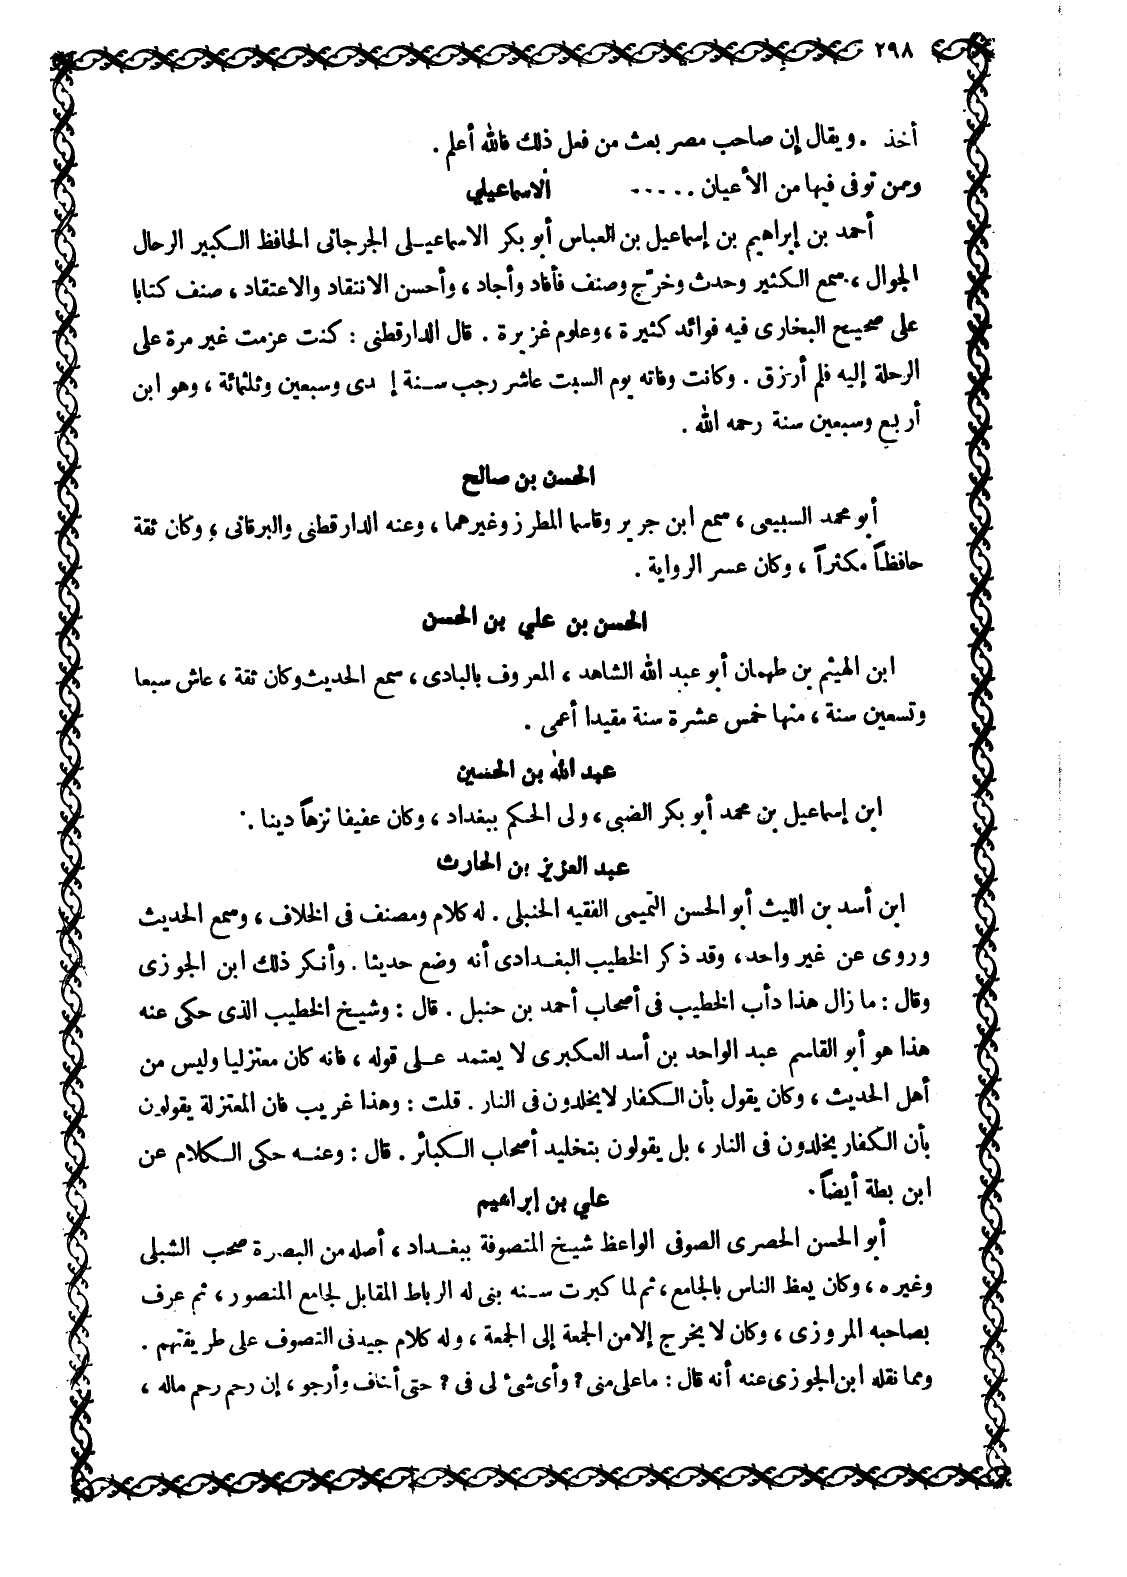 ٢٩٨
أخذ . ويقال إن صاحب مصر بعث من فعل ذلك فالله أعلم .
وممن توفى فيها من الأعيان ..... الاسماعيلي
أحمد بن إبراهيم بن إسماعيل بن العباس أبو بكر الاسماعيلى الجرجانى الحافظ الكبير الرحال
الجوال ، سمع الكثير وحدث وخرّج وصنف فأفاد وأجاد ، وأحسن الانتقاد والاعتقاد ، صنف كتابا
على صحيح البخارى فيه فوائد كثيرة ، وعلوم غزيرة . قال الدارقطنى : كنت عزمت غير مرة على
الرحلة إليه فلم أرزق . وكانت وفاته يوم السبت عاشر رجب سنة إ دى وسبعين وثلثمائة ، وهو ابن
أربع وسبعين سنة رحمه الله .
الحسن بن صالح
أبو محمد السبيعى ، سمع ابن جرير وقاسما المطرز وغيرهما ، وعنه الدارقطنى والبرقانى ، وكان ثقة
حافظاً مكثراً ، وكان عسر الرواية .
الحسن بن علي بن الحسن
ابن الهيثم بن طهمان أبو عبد الله الشاهد ، المعروف بالبادى ، سمع الحديث وكان ثقة ، عاش سبعا
وتسعين سنة ، منها خمس عشرة سنة مقيدا أعمى .
عبد الله بن الحسين
ابن إسماعيل بن محمد أبو بكر الضبى ، ولى الحكم ببغداد ، وكان عفيفا نزهاً دينا .
عبد العزيز بن الحارث
ابن أسد بن الليث أبو الحسن التميمى الفقيه الحنبلى . له كلام ومصنف فى الخلاف ، وسمع الحديث
وروى عن غير واحد ، وقد ذكر الخطيب البغدادى أنه وضع حديثا . وأنكر ذلك ابن الجوزى
وقال : ما زال هذا دأب الخطيب فى أصحاب أحمد بن حنبل . قال : وشيخ الخطيب الذى حكى عنه
هذا هو أبو القاسم عبد الواحد بن أسد العكبرى لا يعتمد على قوله ، فانه كان معتزليا وليس من
أهل الحديث ، وكان يقول بأن الكفار لا يخلدون فى النار . قلت : وهذا غريب فان المعتزلة يقولون
بأن الكفار يخلدون فى النار ، بل يقولون بتخليد أصحاب الكبائر . قال : وعنه حكى الكلام عن
ابن بطة أيضاً .
علي بن إبراهيم
أبو الحسن الحصرى الصوفى الواعظ شيخ المتصوفة ببغداد ، أصله من البصرة صحب الشبلى
وغيره ، وكان يعظ الناس بالجامع ، ثم لما كبرت سنه بنى له الرباط المقابل لجامع المنصور ، ثم عرف
بصاحبه المروزى ، وكان لا يخرج إلا من الجمعة إلى الجمعة ، وله كلام جيد فى التصوف على طريقتهم .
ومما نقله ابن الجوزى عنه أنه قال : ما على منى ؟ وأى شئ لى فى ؟ حتى أخاف وأرجو ، إن رحم رحم ماله ،